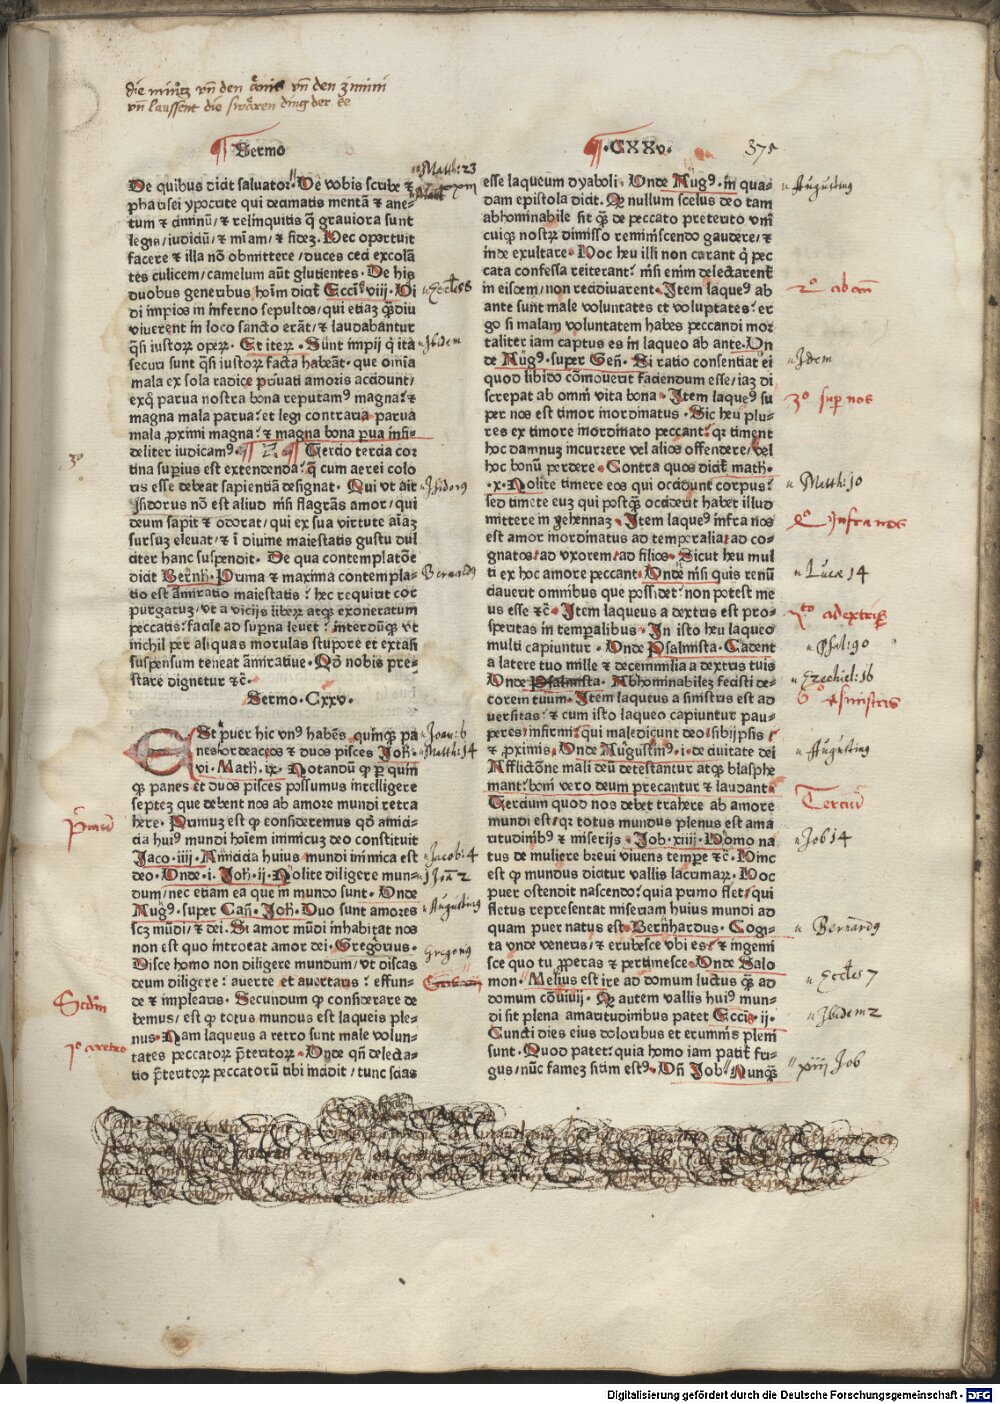 die mintz vn̄ den änis vn̄ den zimini
vn̄ laussent die swären ding der ee
Sermo
.CXXv.
375
De quibus dicit saluator. Ve vobis scribe ⁊
pharisei ypocrite qui decimatis mentā ⁊ ane-
tum ⁊ciminū/ ⁊ relinquitis q̄ grauiora sunt
legis/iudiciū/ ⁊ miam/ ⁊ fideꝫ. Hec oportuit
facere ⁊ illa nō obmittere/duces ceci excolā
tes culicem/camelum aūt glutientes. De his
duobus generibus hoīm dicit̄ Eccīs viij. Vi
di impios in inferno sepultos/qui etiaꝫ q̄diu
viuerent in loco sancto erāt/ ⁊ laudabantur
q̄si iustoꝝ operꝫ. Et iterꝫ. Sunt impij q̇ ita
securi sunt q̄si iustoꝝ facta habeāt. que omīa
mala ex sola radice priuati amoris accidunt/
exq̇ parua nostra bona reputamꝰ magna. ⁊
magna mala parua. et legi contraria parua
mala ꝓximi magna. ⁊ magna bona ꝑua infi-
deliter iudicamꝰ. Tercio tercia cor
tina suꝑius est extendenda. q̄ cum aerei colo
ris esse debeat sapientiā designat. Qui vt ait
Isidorus nō est aliud nisi flagrās amor/qui
deum sapit ⁊ odorat/qui ex sua virtute aīaꝫ
sursuꝫ eleuat/ ⁊ ī diuine maiestatis gustu dul
citer hanc suspendit. De qua contemplatōe
dicit Bernh̄. Prima ⁊ maxima contempla-
tio est āmiratio maiestatis. hec requirit cor
purgatuꝫ/vt a vicijs liberꝫ atqꝫ exoneratum
peccatis. facile ad suꝑna leuet. interdūqꝫ vt
inchil per aliquas morulas stupore et extasi
suspensum teneat āmiratiue. Qd̄ nobis pre-
stare dignetur ⁊c̄.
Sermo. Cxxv.
ESt puer hic vnꝰ habēs quinqꝫ pa
nes ordeaceos ⁊ duos pisces Joh̄.
vi. Math. ix. Notandū ꝙ ꝑ quin
qꝫ panes et duos pisces possumus intelligere
septeꝫ que debent nos ab amore mundi retra
here. Primuꝫ est ꝙ consideremus qd̄ amici-
cia huiꝰ mundi hoīem inimicuꝫ deo constituit
Jaco. iiij. Amicicia huius mundi inimica est
deo. Onde. i. Joh̄. ij. Nolite diligere mun-
dum/nec etiam ea que in mundo sunt. Onde
Augꝰ. super Cań. Joh̄. Duo sunt amores
scꝫ mūdi/ ⁊ dei. Si amor mūdi inhabitat nos
non est quo introeat amor dei. Gregorius.
Disce homo non diligere mundum/vt discas
deum diligere. auerte et auertaris. effun-
de ⁊ implearis. Secundum ꝙ considerare de
bemus/est ꝙ totus mundus est laqueis ple-
nus. Nam laqueus a retro sunt male volun-
tates peccatoꝝ p̄teritoꝝ. Onde qn̄ delecta-
tio p̄teritoꝝ peccatorū tibi incidit/tunc scias
esse laqueum dyaboli. Onde Augꝰ. in qua-
dam epistola dicit. Qꝫ nullum scelus deo tam
abhominabile sit q̄ꝫ de peccato preterito vni
cuiqꝫ nostrꝫ dimisso reminiscendo gaudere/ ⁊
inde exultare. Hoc heu illi non curant q̇ pec
cata confessa reiterant. nisi enim delectarent̄
in eiscem/non recidiuarent. Item laqueꝰ ab
ante sunt male voluntates et voluptates. er
go si malam voluntatem habes peccandi mor
taliter iam captus es in laqueo ab ante. On
de Augꝰ. super Geń. Si ratio consentiat ei
quod libido cōmouerit faciendum esse/iaꝫ di
screpat ab omni vita bona. Item laqueꝰ su
per nos est timor inordinatus. Sic heu plu-
res ex timore inordinato peccant. qꝛ timent
hoc damnuꝫ incurrere vel alios offendere/vel
hoc bonū perdere. Contra quos dicit̄ math.
.x. Nolite timere eos qui occidunt corpus.
sed timete euꝫ qui postqꝫ occiderit habet illud
mittere in gehennaꝫ. Item laqueꝰ infra nos
est amor inordinatus ad temporalia. ad co-
gnatos. ad vxorem/ad filios. Sicut heu mul
ti ex hoc amore peccant. Onde nisi quis renū
ciauerit omnibus que possidet. non potest me
us esse ⁊c̄. Item laqueus a dextris est pro-
speritas in temꝑalibus. In isto heu laqueo
multi capiuntur. Onde Psalmista. Cadent
a latere tuo mille ⁊ decemmilia a dextris tuis
Onde Psalmista. Abhominabileꝫ fecisti de-
corem tuum. Item laqueus a sinistris est ad
uersitas. ⁊ cum isto laqueo capiuntur pau-
peres/infirmi. qui maledicunt deo/sibijpsis
⁊ ꝓximis. Onde Augustinꝰ. i. de ciuitate dei
Afflictōne mali deū detestantur atqꝫ blasphe
mant. boni vero deum precantur ⁊ laudant.
Tercium quod nos debet trahere ab amore
mundi est/qꝛ totus mundus plenus est ama
ritudinibꝰ ⁊ miserijs. Job. xiiij. Homo na
tus de muliere breui viuens tempe ⁊c̄. Hinc
est ꝙ mundus dicitur vallis lacrimaꝝ. Hoc
puer ostendit nascendo. quia primo flet/qui
fletus representat miseriam huius mundi ad
quam puer natus est. Bernhardus. Cogi-
ta vnde veneris/ ⁊ erubesce vbi es. ⁊ ingemi
sce quo tu ꝓperas ⁊ pertimesce. Onde Salo
mon. Melius est ire ad domum luctus q̄ꝫ ad
domum cōuiuij. Qꝫ autem vallis huiꝰ mun-
di sit plena amaritudinibus patet Eccīs. ij.
Cuncti dies eius doloribus et erumnis pleni
sunt. Quod patet. quia homo iam patit̄ fri-
gus/nūc famez sitim estꝰ. Vn̄ Job. Nunqꝫ
Matth: 23
Eccles 8
Ibidem
3º
Isidorꝰ
Bernardꝰ
Joan: 6
Matth: 14
Jacob: 4
1 Joā 2
Augustinꝰ
Gregoriꝰ
Primū
Secdm
1º a retro
Augustinꝰ
2º ab an
Idem
3º supͬ nos
Matth: 10
4º Infra nos
Lucæ 14
5to a dextris
Psal: 90
Ezechiel: 16
6º A sinistris
Augustinꝰ
Terciū
Job 14
Bernardꝰ
Eccles 7
Ibidem 2
xiiij Job
Digitalisierung gefördert durch die Deutsche Forschungsgemeinschaft - DFG